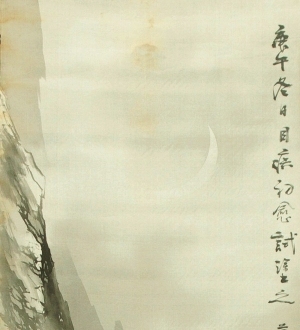 庚午冬日目疾初愈試塗之